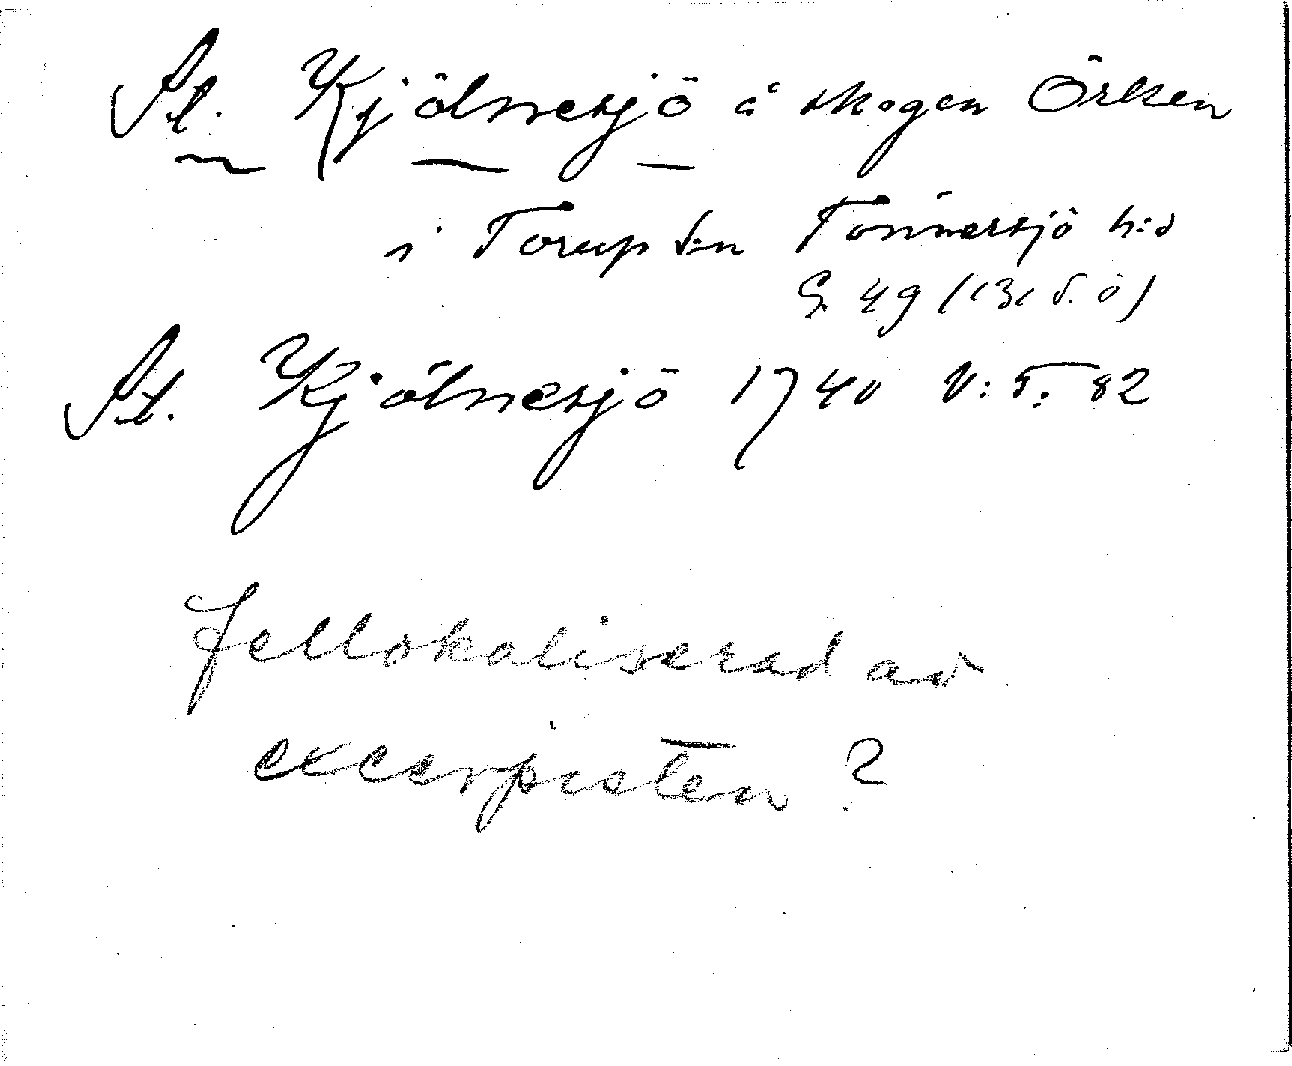 St. Kjölnesjö å skogen Örken
i Torup s:n Tönnersjö h:d
G. 49 (131 S. ö)
St. Kjölnesjö 1740 V: T: 82
fellokaliserad av
excerpisten?